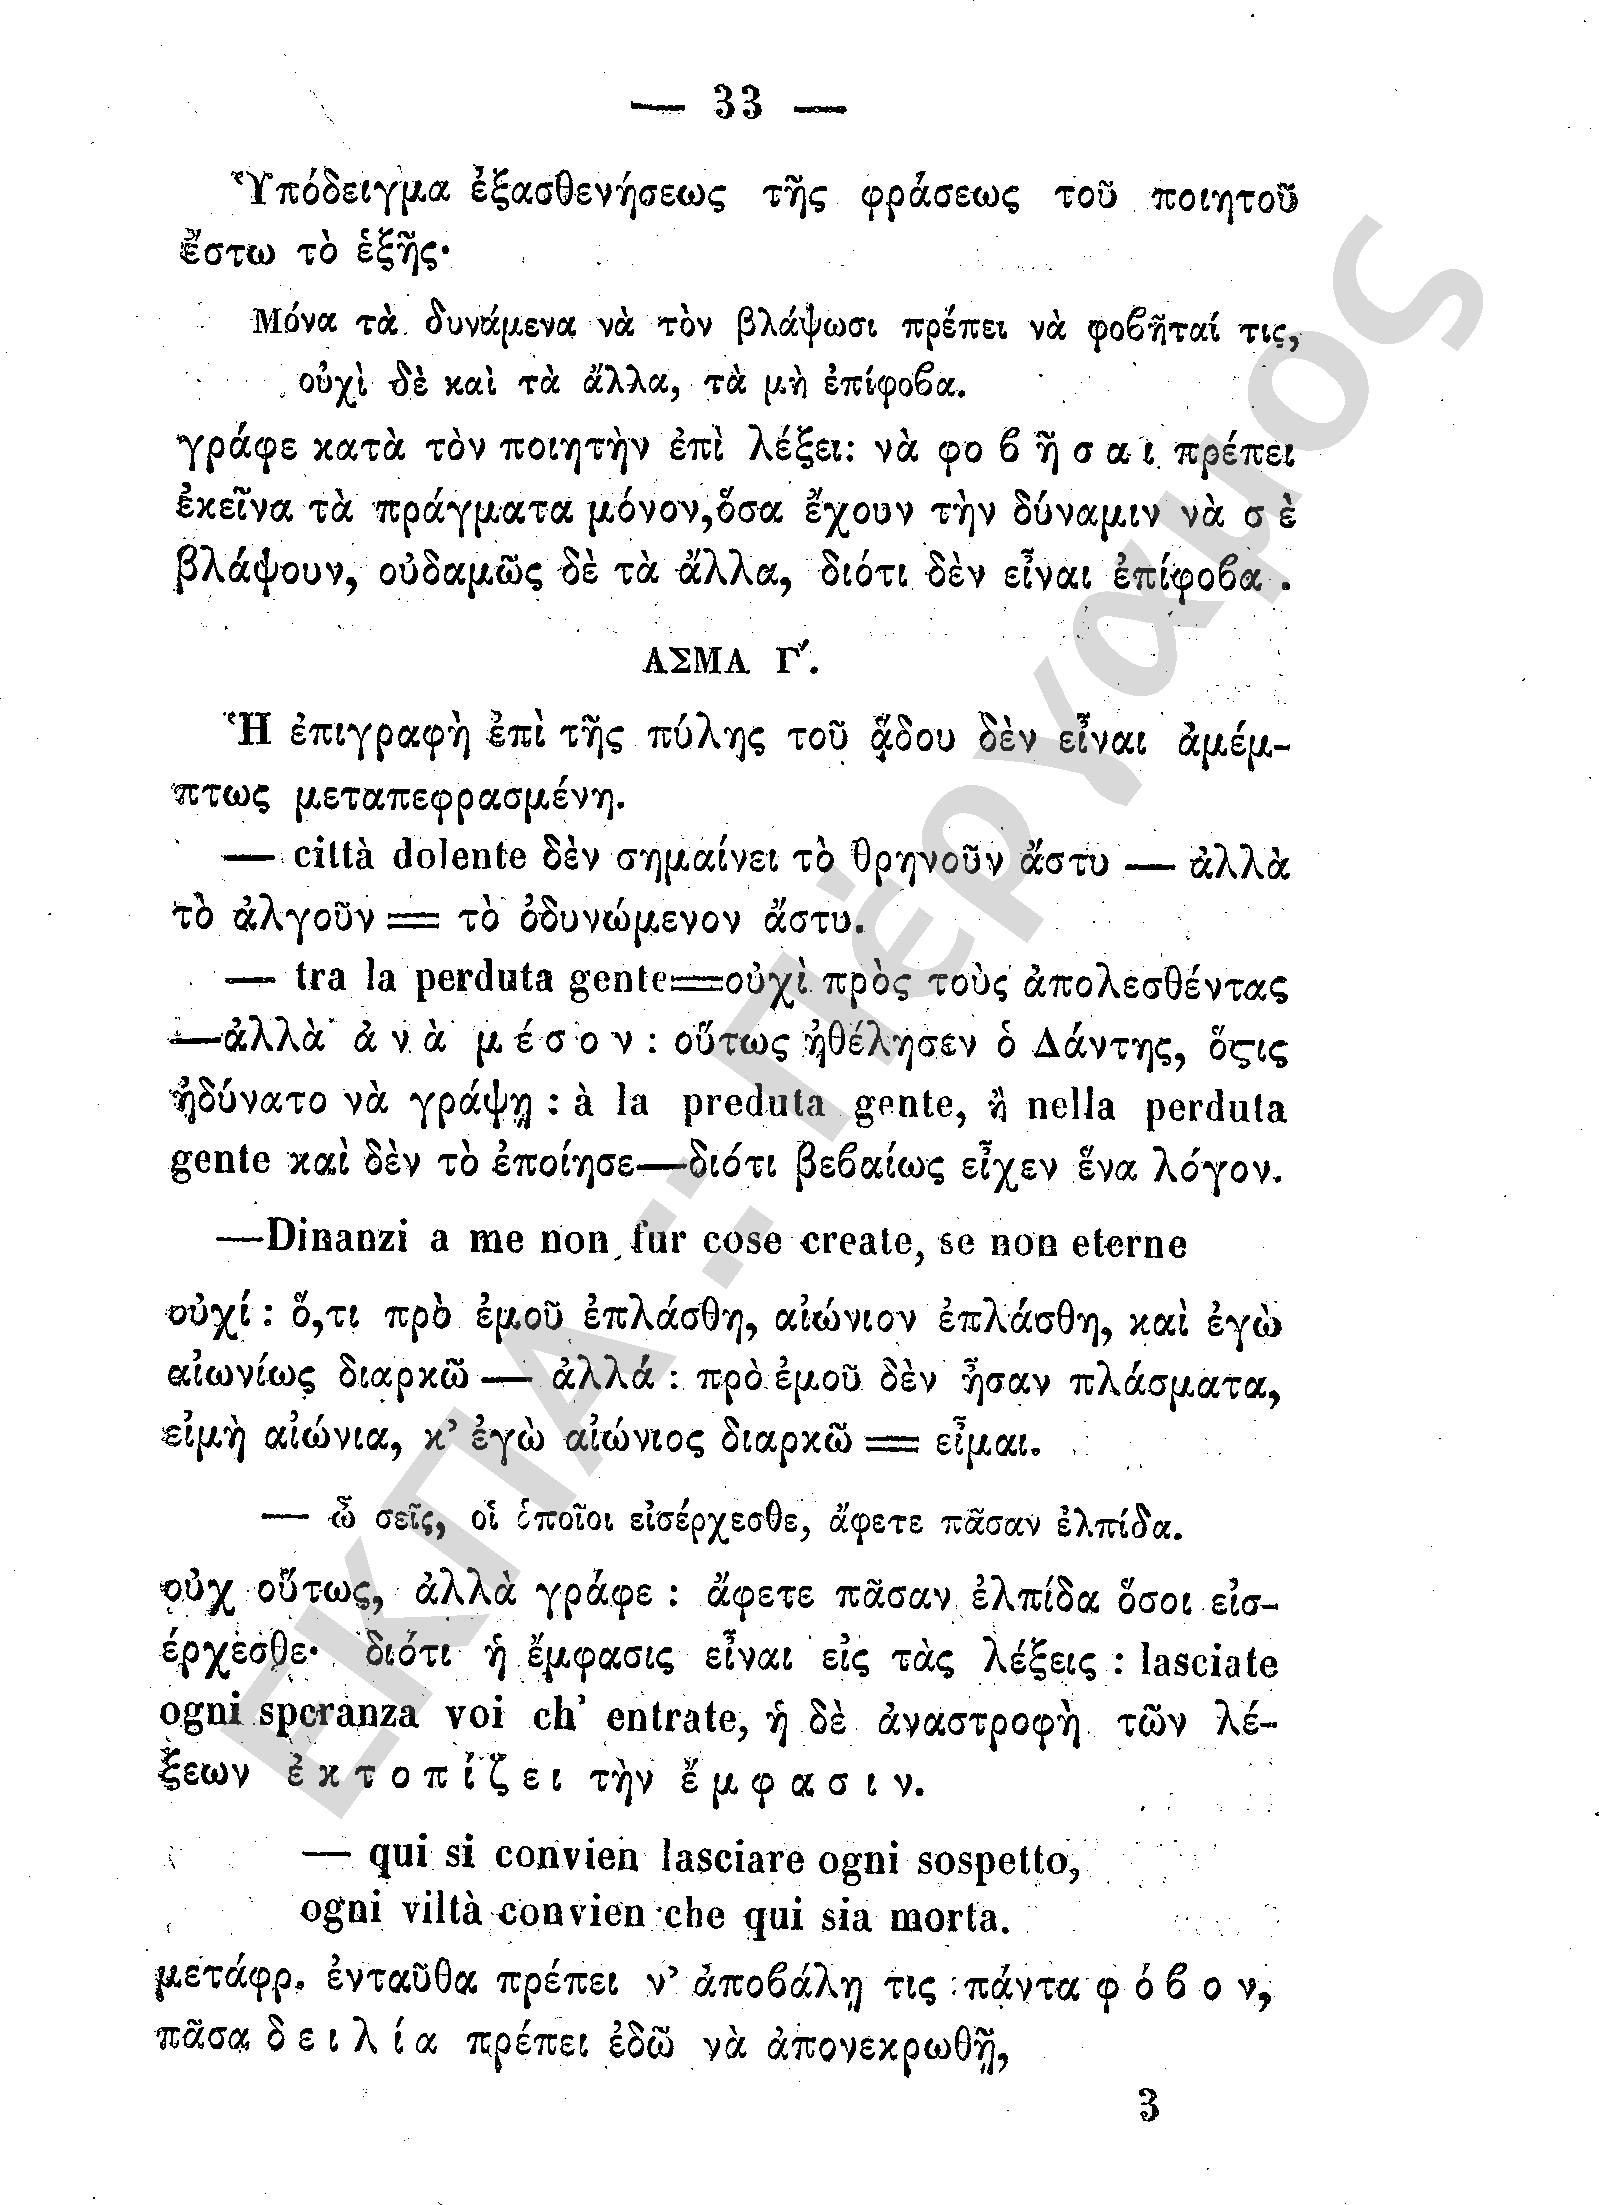 — 33 —
Ὑπόδειγμα ἐξασθενήσεως τῆς φράσεως τοῦ ποιητοῦ
ἔστω τὸ ἑξῆς·
Μόνα τὰ δυνάμενα νὰ τὸν βλάψωσι πρέπει νὰ φοβῆταί τις,
οὐχὶ δὲ καὶ τὰ ἄλλα, τὰ μὴ ἐπίφοβα.
γράφε κατὰ τὸν ποιητὴν ἐπὶ λέξει: νὰ φο β ῆ σ α ι πρέπει
ἐκεῖνα τὰ πράγματα μόνον, ὅσα ἔχουν τὴν δύναμιν νὰ σ ὲ
βλάψουν, οὐδαμῶς δὲ τὰ ἄλλα, διότι δὲν εἶναι ἐπίφοβα .
ΑΣΜΑ Γ΄.
Ἡ ἐπιγραφὴ ἐπὶ τῆς πύλης τοῦ ᾅδου δὲν εἶναι ἀμέμ-
πτως μεταπεφρασμένη.
— città dolente δὲν σημαίνει τὸ θρηνοῦν ἄστυ — ἀλλὰ
τὸ ἀλγοῦν = τὸ ὀδυνώμενον ἄστυ.
— tra la perduta gente=οὐχὶ πρὸς τοὺς ἀπολεσθέντας
—ἀλλὰ ἀ ν ὰ μ έ σ ο ν : οὕτως ἠθέλησεν ὁ Δάντης, ὅϛις
ἠδύνατο νὰ γράψῃ : à la preduta gente, ἢ nella perduta
gente καὶ δὲν τὸ ἐποίησε—διότι βεβαίως εἶχεν ἕνα λόγον.
—Dinanzi a me non fur cose create, se non eterne
οὐχί : ὅ,τι πρὸ ἐμοῦ ἐπλάσθη, αἰώνιον ἐπλάσθη, καὶ ἐγὼ
αἰωνίως διαρκῶ — ἀλλά : πρὸ ἐμοῦ δὲν ἦσαν πλάσματα,
εἰμὴ αἰώνια, κ' ἐγὼ αἰώνιος διαρκῶ = εἶμαι.
— ὦ σεῖς, οἱ ὁποῖοι εἰσέρχεσθε, ἄφετε πᾶσαν ἐλπίδα.
οὐχ οὕτως, ἀλλὰ γράφε : ἄφετε πᾶσαν ἐλπίδα ὅσοι εἰσ-
έρχεσθε· διότι ἡ ἔμφασις εἶναι εἰς τὰς λέξεις : lasciate
ogni speranza voi ch' entrate, ἡ δὲ ἀναστροφὴ τῶν λέ-
ξεων ἐ κ τ ο π ί ζ ε ι τὴν ἔ μ φ α σ ι ν.
— qui si convien lasciare ogni sospetto,
ogni viltà convien che qui sia morta.
μετάφρ. ἐνταῦθα πρέπει ν' ἀποβάλῃ τις πάντα φ ό β ο ν,
πᾶσα δ ε ι λ ί α πρέπει ἐδῶ νὰ ἀπονεκρωθῇ,
3
ΕΚΠΑ: Πέργαμος